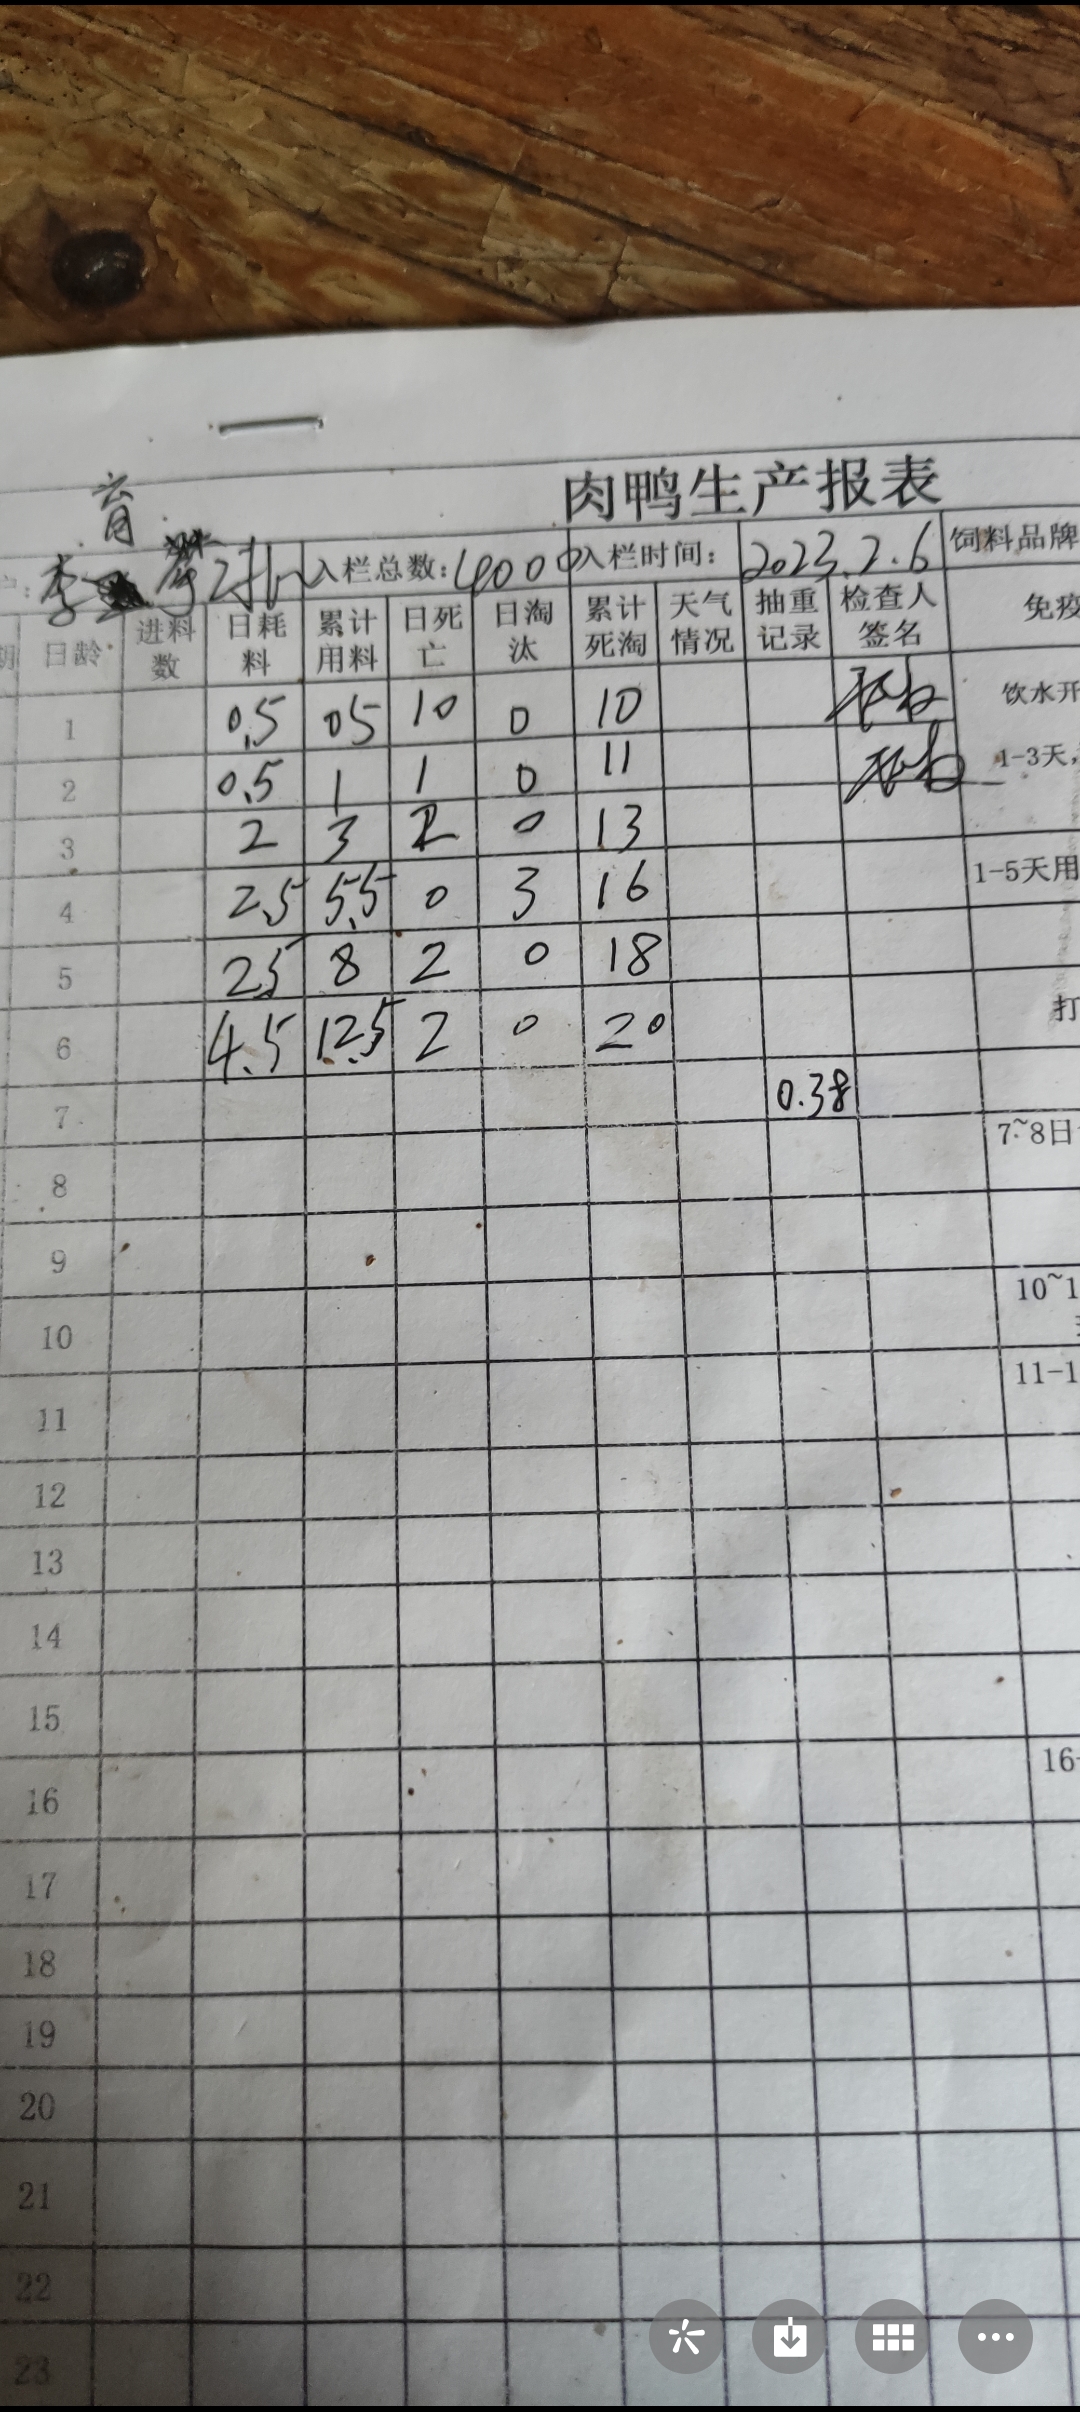 肉鸭生产报表
育
李 2批 入栏总数: 4000 入栏时间: 2023.2.6 饲料品牌
日龄 进料数 日耗料 累计用料 日死亡 日淘汰 累计死淘 天气情况 抽重记录 检查人签名 免疫
1 0.5 05 10 0 10 饮水开
2 0.5 1 1 0 11 1-3天,
3 2 3 2 0 13
4 2.5 5.5 0 3 16 1-5天用
5 2.5 8 2 0 18
6 4.5 12.5 2 0 20 打
7 0.38
7~8日
8
9
10 10~1
11 11-1
12
13
14
15
16 16-
17
18
19
20
21
22
23